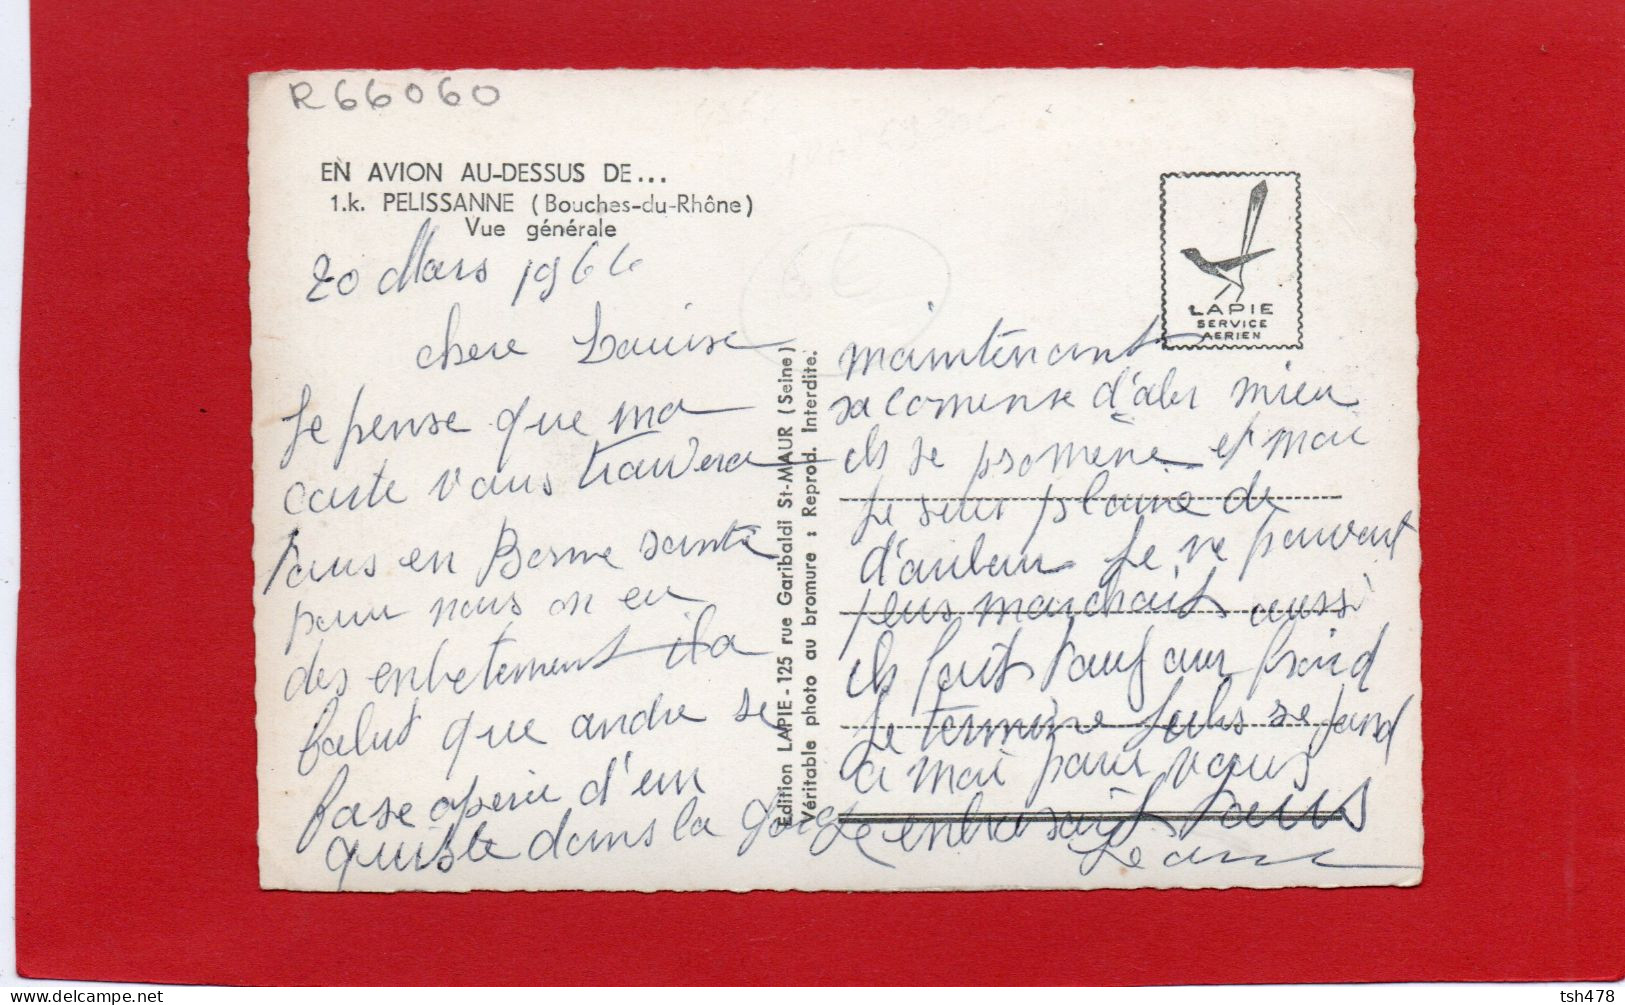 R66060
EN AVION AU-DESSUS DE...
1.k. PELISSANNE (Bouches-du-Rhône)
Vue générale
20 Mars 1966
66
chere Louise
Je pense que ma
carte vous trouvera
tous en Bonne santé
pour nous on en
des enbetement il a
falut que andre se
fase operé d'un
quiste dans la gorge
Edition LAPIE - 125 rue Garibaldi St-MAUR (Seine)
Véritable photo au bromure : Reprod. Interdite.
LAPIE
SERVICE
AERIEN
maintenant
sa comense d'aler mieu
ils se promène et moi
Je suis plaine de
Je ne pouvait
plus marchait aussi
ils fait froid
Je termine se joind
a moi pour vous
enbrasait tous